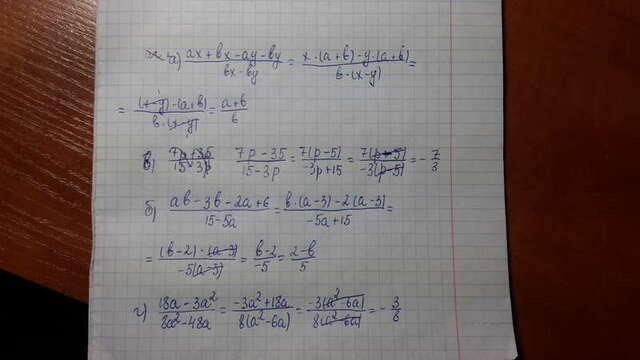 а) (ax + bx - ay - by)/(bx - by) = (x·(a+b) - y·(a+b))/(b·(x-y)) =
= ((x-y)·(a+b))/(b·(x-y)) = (a+b)/b
в) (7p+35)/(15-3p) (7p-35)/(15-3p) = (7(p-5))/(-3p+15) = (7(p-5))/(-3(p-5)) = -7/3
б) (ab - 3b - 2a + 6)/(15-5a) = (b·(a-3) - 2(a-3))/(-5a+15) =
= ((b-2)·(a-3))/(-5(a-3)) = (b-2)/(-5) = (2-b)/5
г) (18a - 3a²)/(8a² - 48a) = (-3a² + 18a)/(8(a² - 6a)) = (-3(a² - 6a))/(8(a² - 6a)) = -3/8